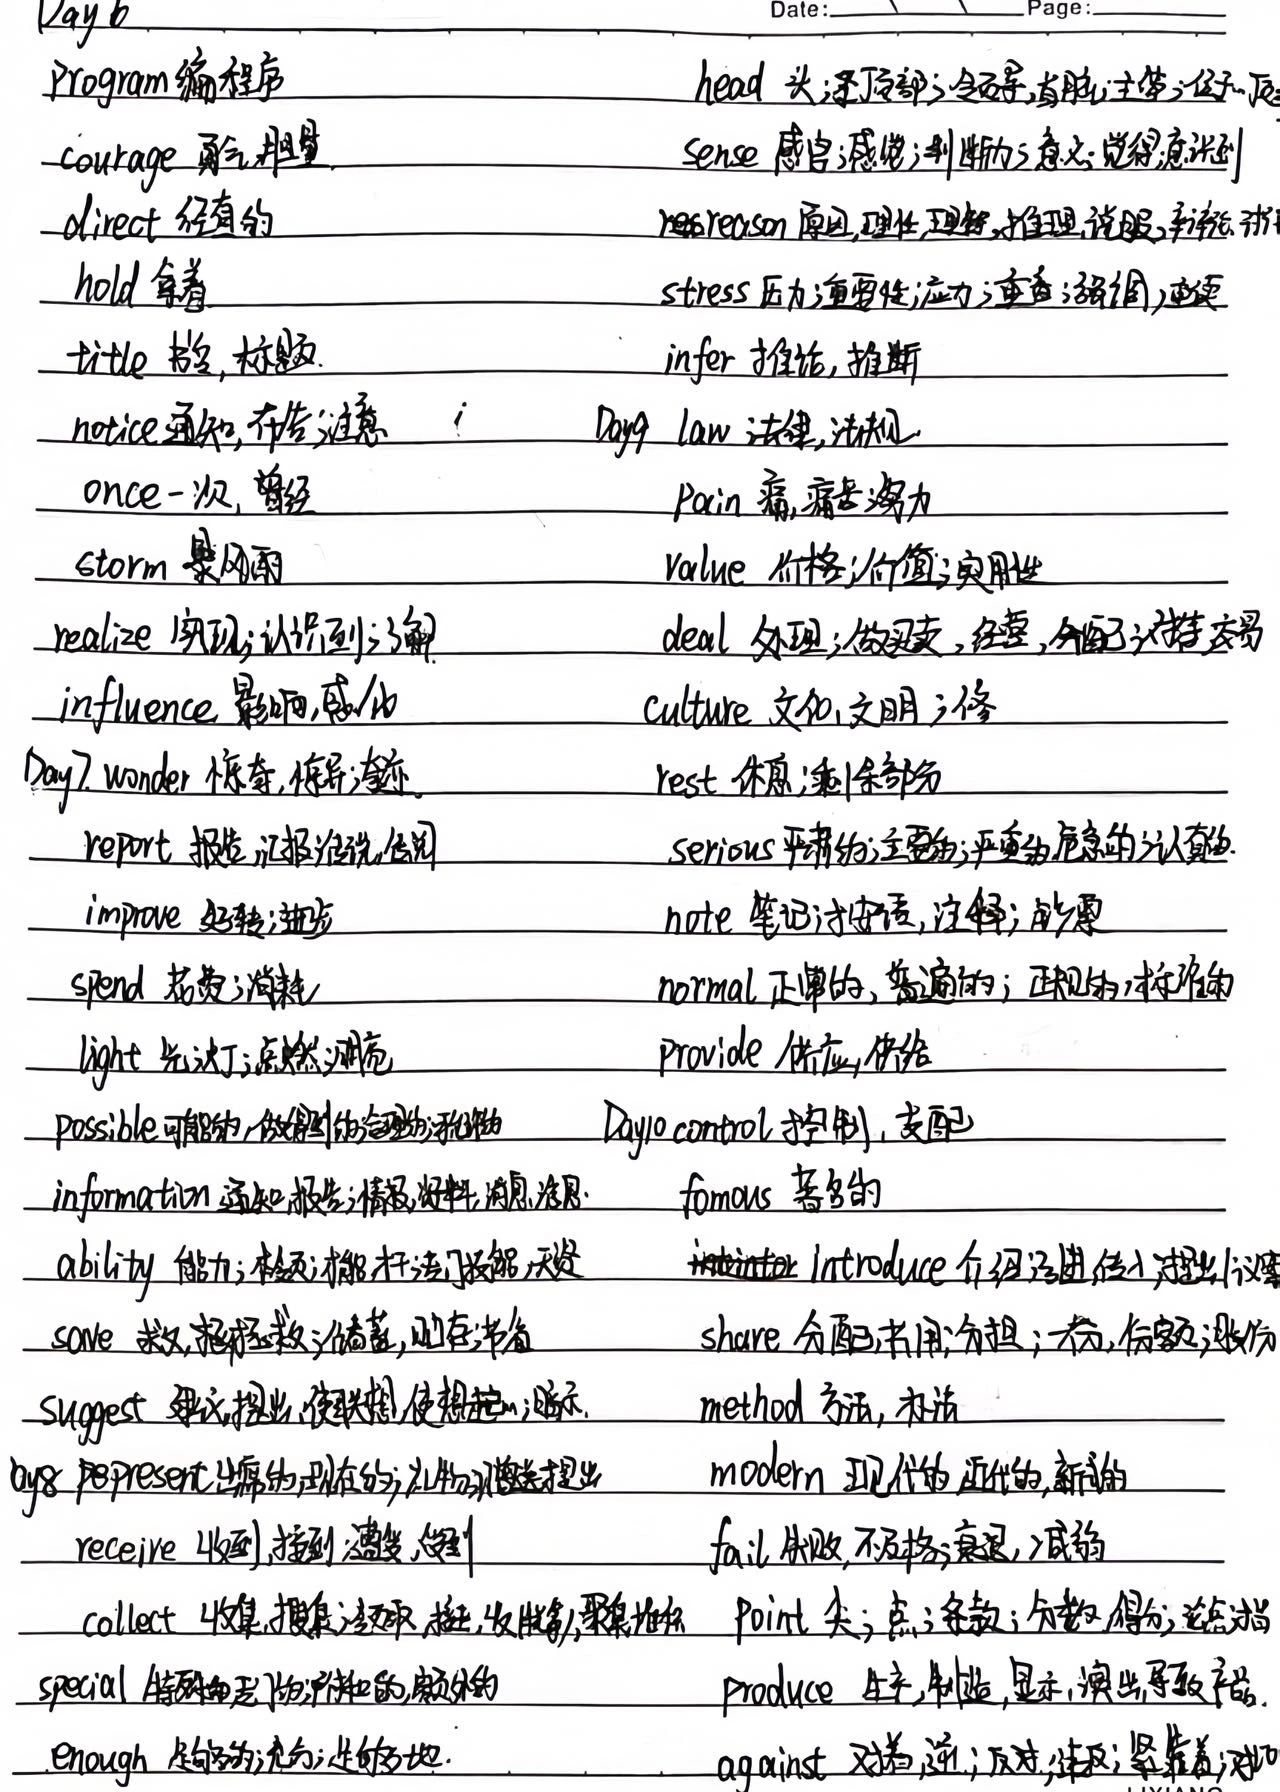 Day 6
Date: Page:
program 编程序
courage 勇气 胆量
direct 径直的
hold 拿着
title 书名,标题.
notice 通知,布告;注意
once 一次,曾经
storm 暴风雨
realize 实现;认识到;了解
influence 影响,感化
Day7. wonder 惊奇,惊异;奇迹.
report 报告,汇报;传说,传闻
improve 好转;进步
spend 花费;消耗
light 光;灯;点燃;明亮
possible 可能的,做得到的;合理的
information 通知,报告;情报,资料,消息
ability 能力;技能,天资
save 救,拯救;储蓄,贮存;节省
suggest 建议,提出,使联想,使想起…;暗示.
Day8 present 出席的,现在的;礼物;赠送,提出
receive 收到,接到;遭受,受到
collect 收集,搜集;领取,收账,聚集,堆积
special 特别的;专门的,附加的,额外的
enough 足够的;充分;足够地.
head 头;顶部;领导,首脑;主席;位于…顶
sense 感官;感觉;判断力;意义;觉得,意识到
reason 原因,理性,理智,推理,说服,辩论,讨
stress 压力;重要性;应力;重音;强调,重读
infer 推论,推断
Day9 law 法律,法规.
pain 痛,痛苦;努力
value 价格;价值;实用性
deal 处理;做买卖,经营,分配;对待;交易
culture 文化,文明;修
rest 休息;剩余部分
serious 严肃的;主要的;严重的,危急的;认真的.
note 笔记;按语,注释;钞票
normal 正常的,普通的;正规的,标准的
provide 供应,供给
Day10 control 控制,支配
famous 著名的
introduce 介绍;引进,传入;提出(议案
share 分配,共用;分担;一份,份额;股份
method 方法,办法
modern 现代的 近代的,新式的
fail 失败,不及格;衰退,减弱
point 尖;点;条款;分数,得分;论点;指
produce 生产,制造,显示,演出,导致,产品.
against 对着,逆;反对;违反;紧靠着;对比
LIXIANG